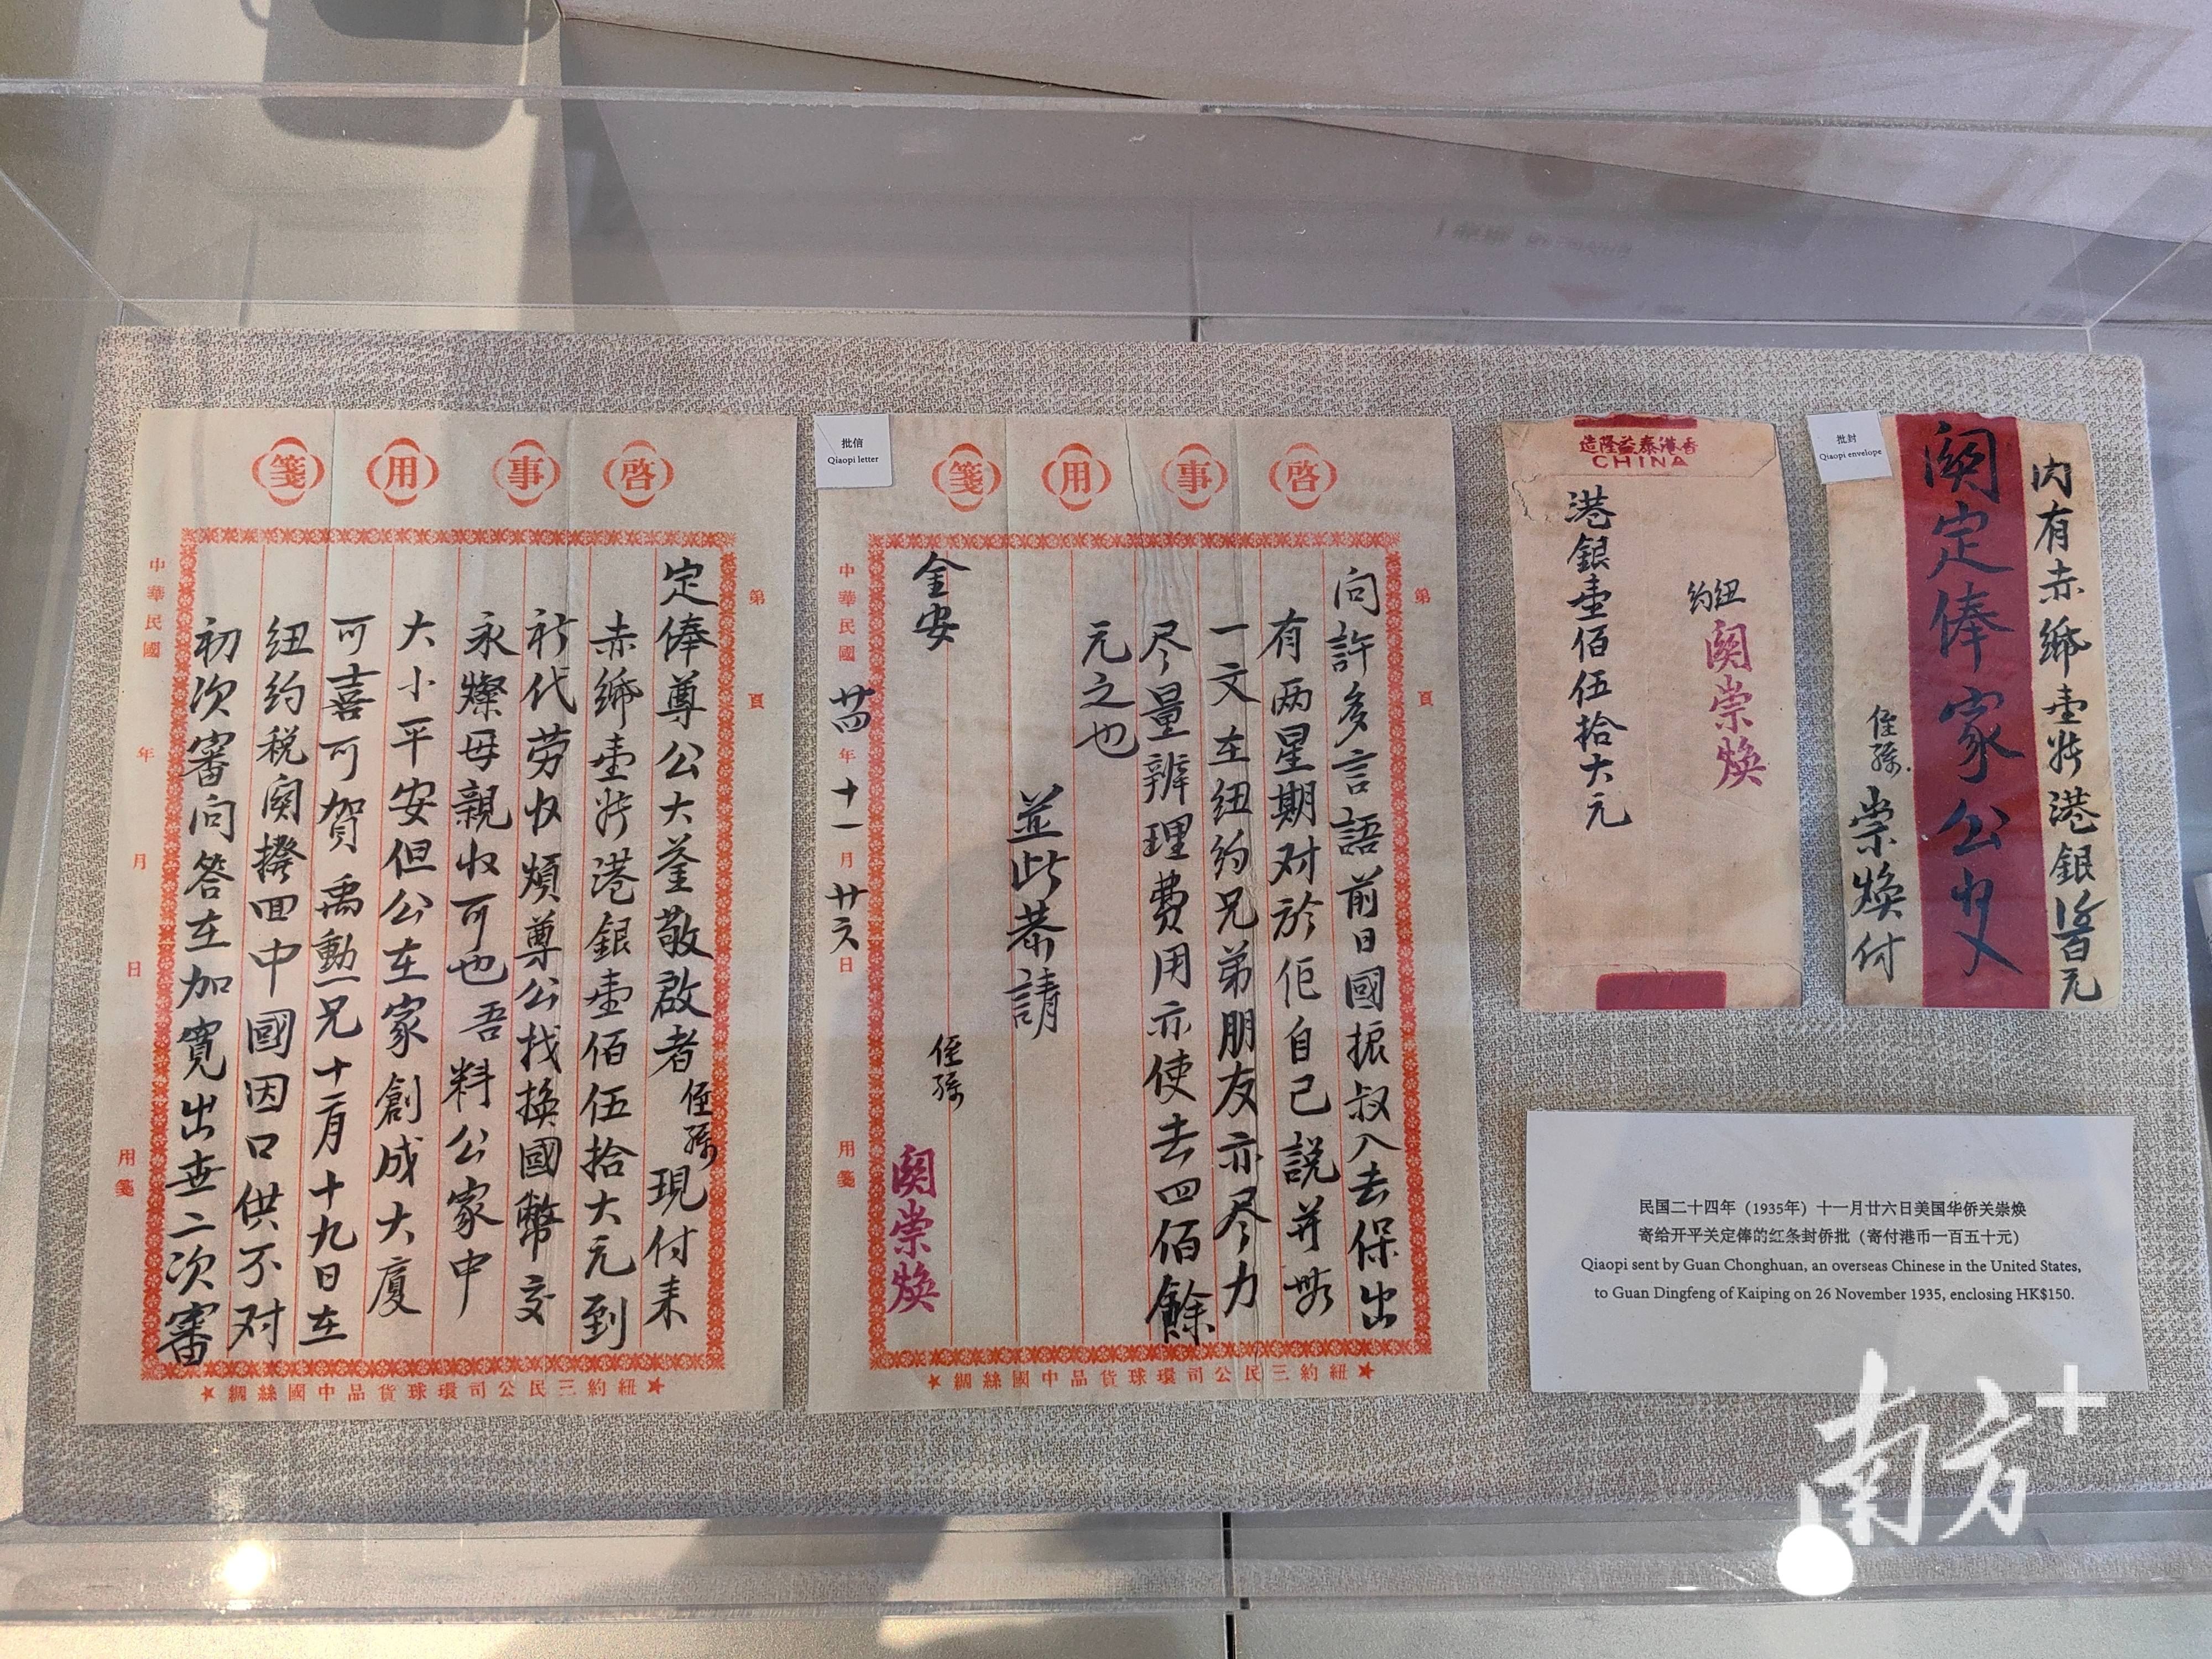 啓事用箋
第 頁
定俸尊公大鉴敬啟者侄孫現付来
赤紙壹張港銀壹佰伍拾大元到
祈代劳收煩尊公找換國幣交
永燦母親收可也吾料公家中
大小平安但公在家創成大廈
可喜可賀禹勳兄十一月十九日在
纽约税関撥回中國因口供不对
初次審问答在加寬出世二次審
中華民國 年 月 日 用箋
★紐約三民公司環球貨品中國絲綢★
批信
Qiaopi letter
啓事用箋
第 頁
问許多言語前日國振叔入去保出
有两星期对於佢自己説并無
一文在纽约兄弟朋友亦尽力
尽量辨理費用亦使去四佰餘
元之也
並此恭請
金安
侄孫 関崇焕
中華民國廿四年十一月廿六日 用箋
★紐約三民公司環球貨品中國絲綢★
香港泰益隆造
CHINA
纽约 関崇焕
港銀壹佰伍拾大元
批封
Qiaopi envelope
内有赤紙壹張港銀元
関定俸家公收
侄孫崇焕付
民国二十四年（1935年）十一月廿六日美国华侨关崇焕
寄给开平关定俸的红条封侨批（寄付港币一百五十元）
Qiaopi sent by Guan Chonghuan, an overseas Chinese in the United States,
to Guan Dingfeng of Kaiping on 26 November 1935, enclosing HK$150.
南方+